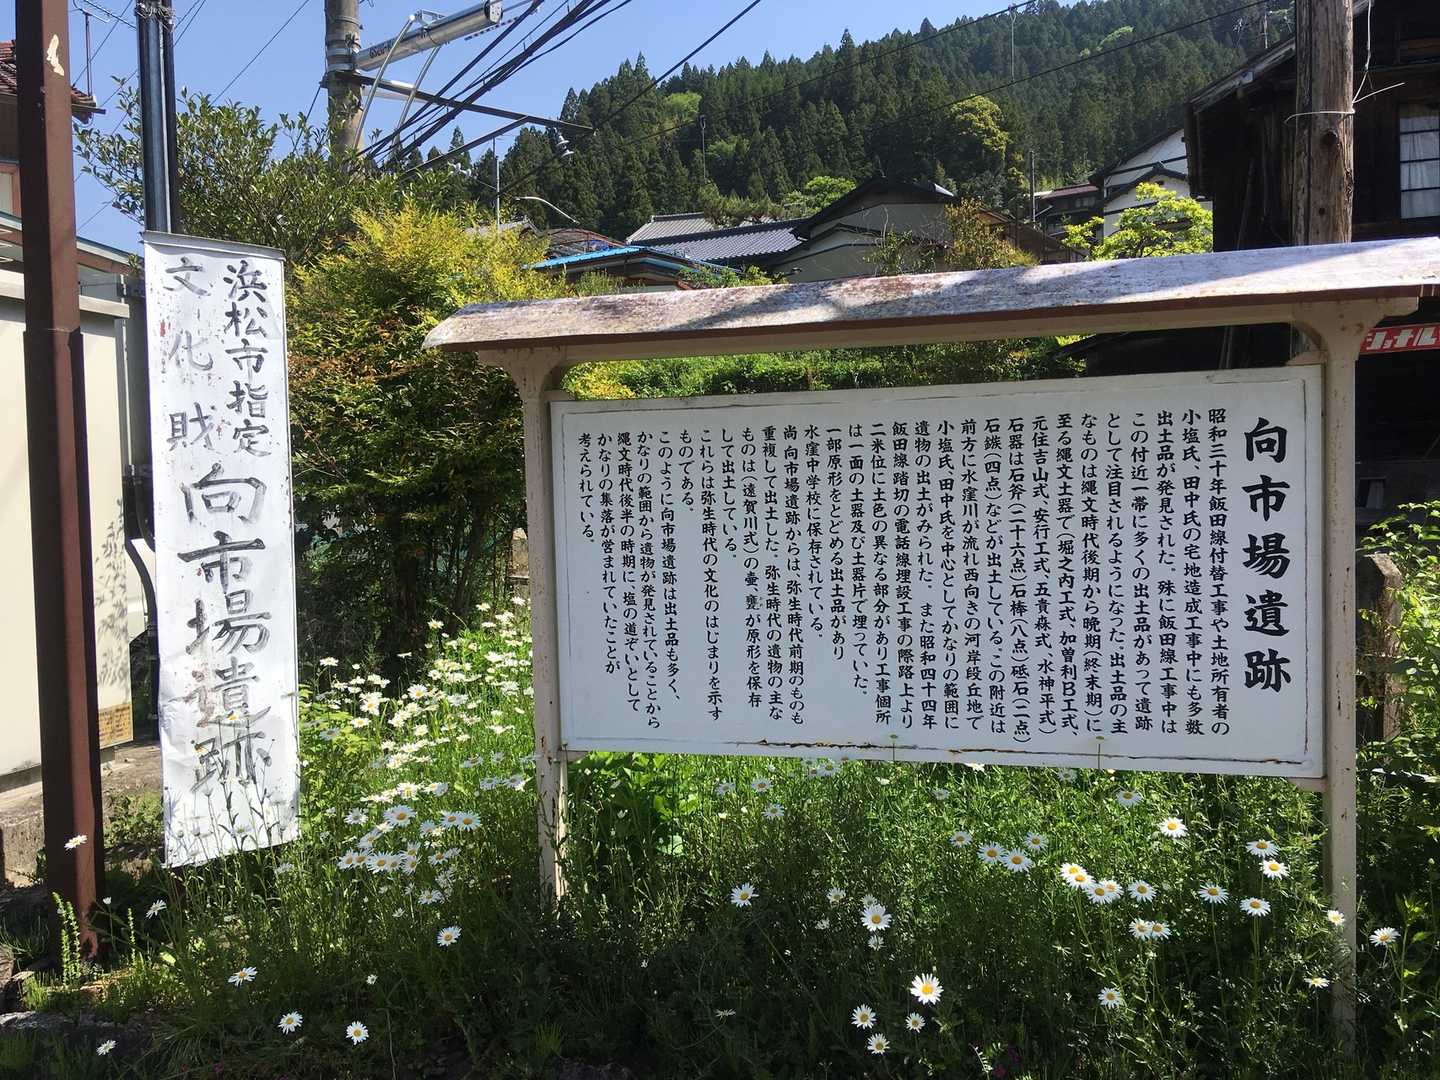 浜松市指定
文化財
向市場遺跡
向市場遺跡
昭和三十年飯田線付替工事や土地所有者の
小塩氏、田中氏の宅地造成工事中にも多数
出土品が発見された。殊に飯田線工事中は
この付近一帯に多くの出土品があって遺跡
として注目されるようになった。出土品の主
なものは縄文時代後期から晩期(終末期)に
至る縄文土器で(堀之内工式、加曽利B工式、
元住吉山式、安行工式、五貫森式、水神平式)
石器は石斧(二十六点)石棒(八点)砥石(二点)
石鏃(四点)などが出土している。この附近は
前方に水窪川が流れ西向きの河岸段丘地で
小塩氏、田中氏を中心としてかなりの範囲に
遺物の出土がみられた。また昭和四十四年
飯田線踏切の電話線埋設工事の際路上より
二米位に土色の異なる部分があり工事個所
は一面の土器及び土器片で埋っていた。
一部原形をとどめる出土品があり
水窪中学校に保存されている。
尚向市場遺跡からは、弥生時代前期のものも
重複して出土した。弥生時代の遺物の主な
ものは(遠賀川式)の壷、甕が原形を保存
して出土している。
これらは弥生時代の文化のはじまりを示す
ものである。
このように向市場遺跡は出土品も多く、
かなりの範囲から遺物が発見されていることから
縄文時代後半の時期に、塩の道ぞいとして
かなりの集落が営まれていたことが
考えられている。